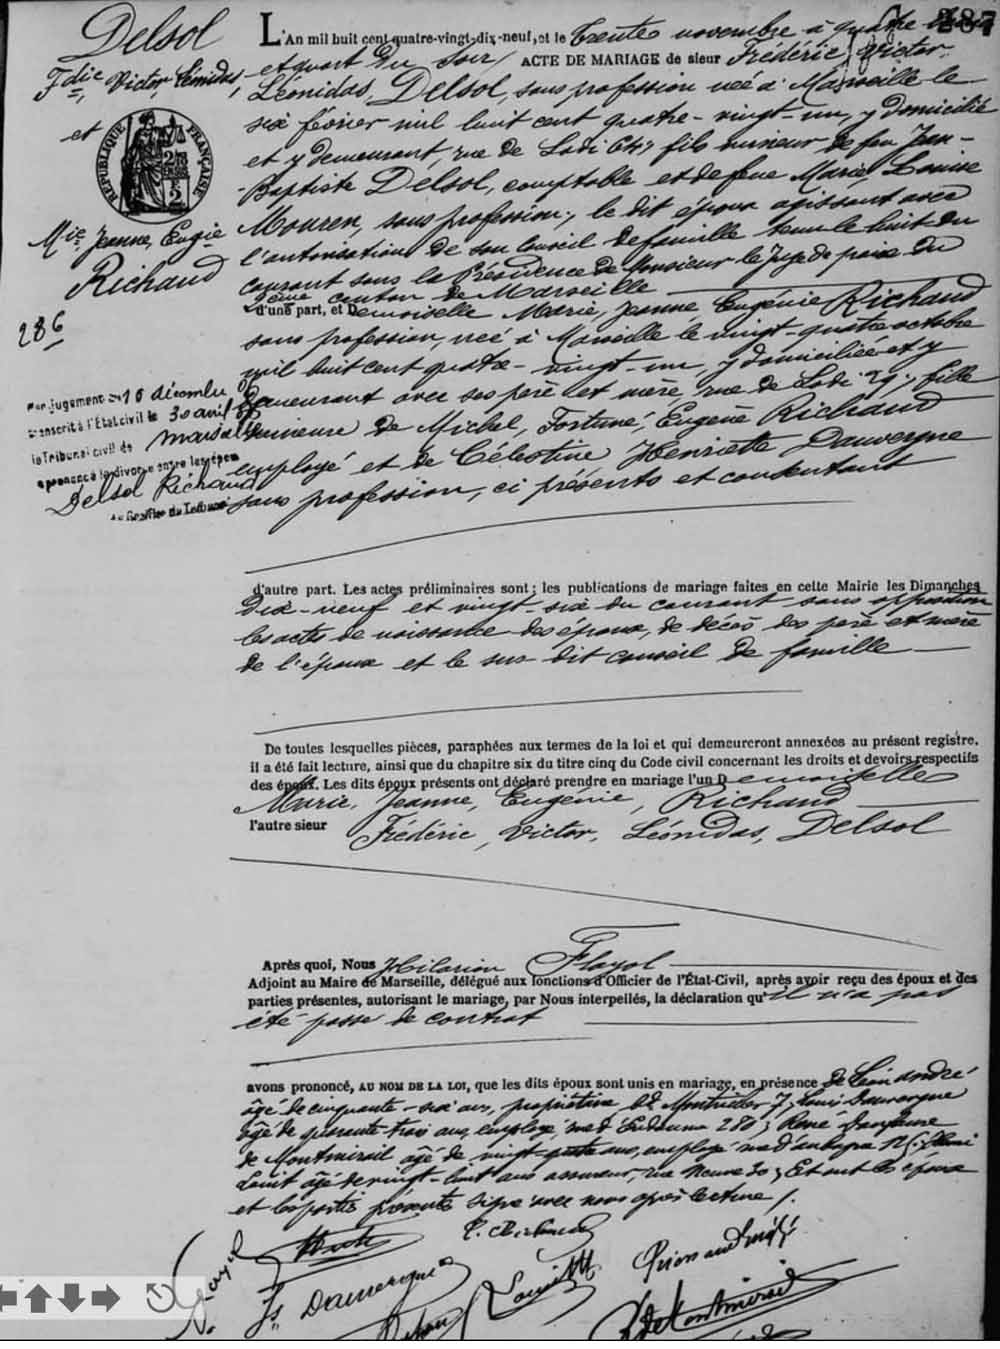 Delsol
Fdie Victor Léonidas,
et
RÉPUBLIQUE FRANÇAISE
Mie Jeanne, Eugie
Richaud
286
287
L'An mil huit cent quatre-vingt-dix-neuf, et le trente novembre à quatre heures
et quart du soir / ACTE DE MARIAGE de sieur Frédéric, Victor
Léonidas, Delsol, sans profession né à Marseille le
six février mil huit cent quatre-vingt-un, y domicilié
et y demeurant, rue de Lodi 64, fils mineur de feu Jean-
-Baptiste Delsol, comptable et de feue Marie, Louise
Mouren, sans profession, le dit époux agissant avec
l'autorisation de son Conseil de famille tenu le huit du
courant sous la Présidence de Monsieur le Juge de paix du
canton de Marseille
d'une part, et Demoiselle Marie, Jeanne, Eugénie Richaud
sans profession, née à Marseille le vingt-quatre octobre
mil huit cent quatre-vingt-un, y domiciliée et y
demeurant avec ses père et mère, rue de Lodi 29, fille
mineure de Michel, Fortuné, Eugène Richaud
employé et de Célestine Henriette Dauvergne
sans profession, ci présents et consentant
Par jugement du 16 décembre
transcrit à l'État civil le 30 avril
le Tribunal civil de Marseille
a prononcé le divorce entre les époux
Delsol Richaud
Le Greffier du Tribunal
d'autre part. Les actes préliminaires sont; les publications de mariage faites en cette Mairie les Dimanches
dix-neuf et vingt six du courant sans opposition
les actes de naissance des époux, de décès des père et mère
de l'époux et le sus-dit conseil de famille
De toutes lesquelles pièces, paraphées aux termes de la loi et qui demeureront annexées au présent registre,
il a été fait lecture, ainsi que du chapitre six du titre cinq du Code civil concernant les droits et devoirs respectifs
des époux. Les dits époux présents ont déclaré prendre en mariage l'un Demoiselle
Marie, Jeanne, Eugénie, Richaud
l'autre sieur Frédéric, Victor, Léonidas, Delsol
Après quoi, Nous Hilarion Flayol
Adjoint au Maire de Marseille, délégué aux fonctions d'Officier de l'État-Civil, après avoir reçu des époux et des
parties présentes, autorisant le mariage, par Nous interpellés, la déclaration qu'il n'a pas
été passé de contrat
avons prononcé, AU NOM DE LA LOI, que les dits époux sont unis en mariage, en présence de Léon André
âgé de cinquante-six ans, propriétaire Bd Montricher 7; Louis Dauvergne
âgé de quarante trois ans, employé, rue d'Endoume 280; René
de Montmirail âgé de vingt-quatre ans, employé rue d'Aubagne
âgé de vingt-huit ans assureur, rue Neuve 30; Et ont les époux
et les parties présents signé avec nous après lecture /.
Dauvergne
de Montmirail